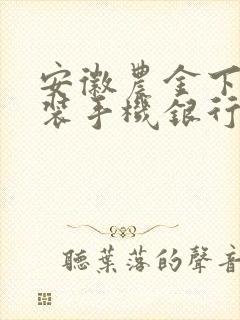 安徽農金下
裝手機銀行
聽葉落的聲音